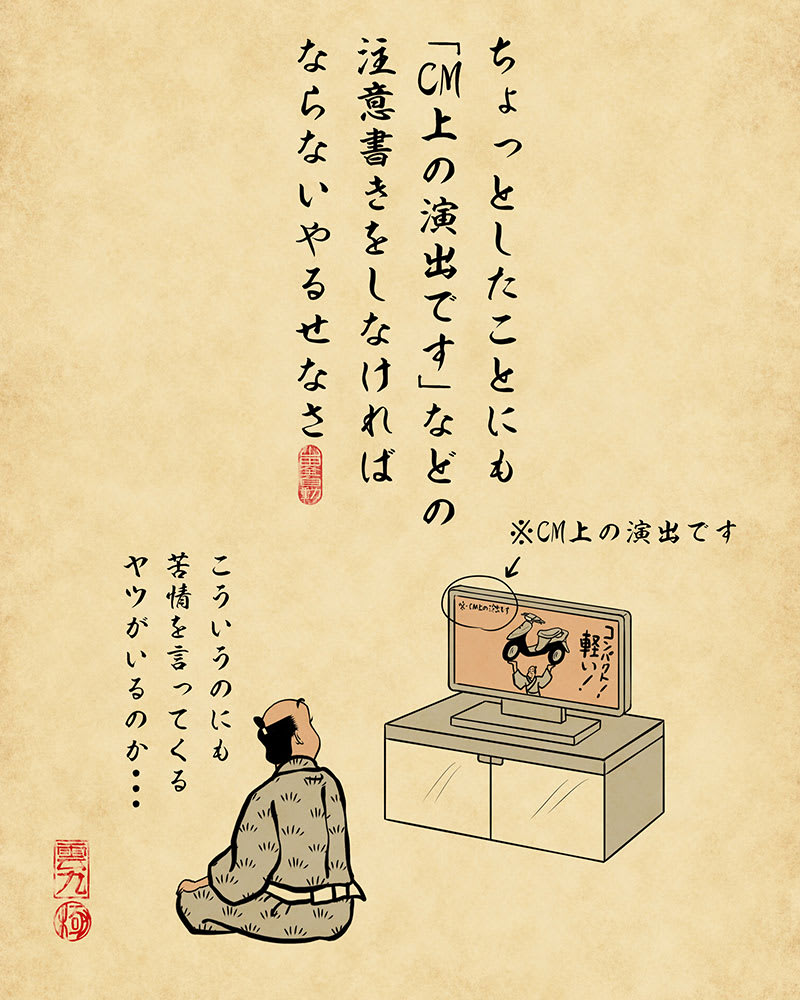 ちょっとしたことにも
「CM上の演出です」などの
注意書きをしなければ
ならないやるせなさ
※CM上の演出です
※CM上の演出です
コンパクト!
軽い!
こういうのにも
苦情を言ってくる
ヤツがいるのか・・・